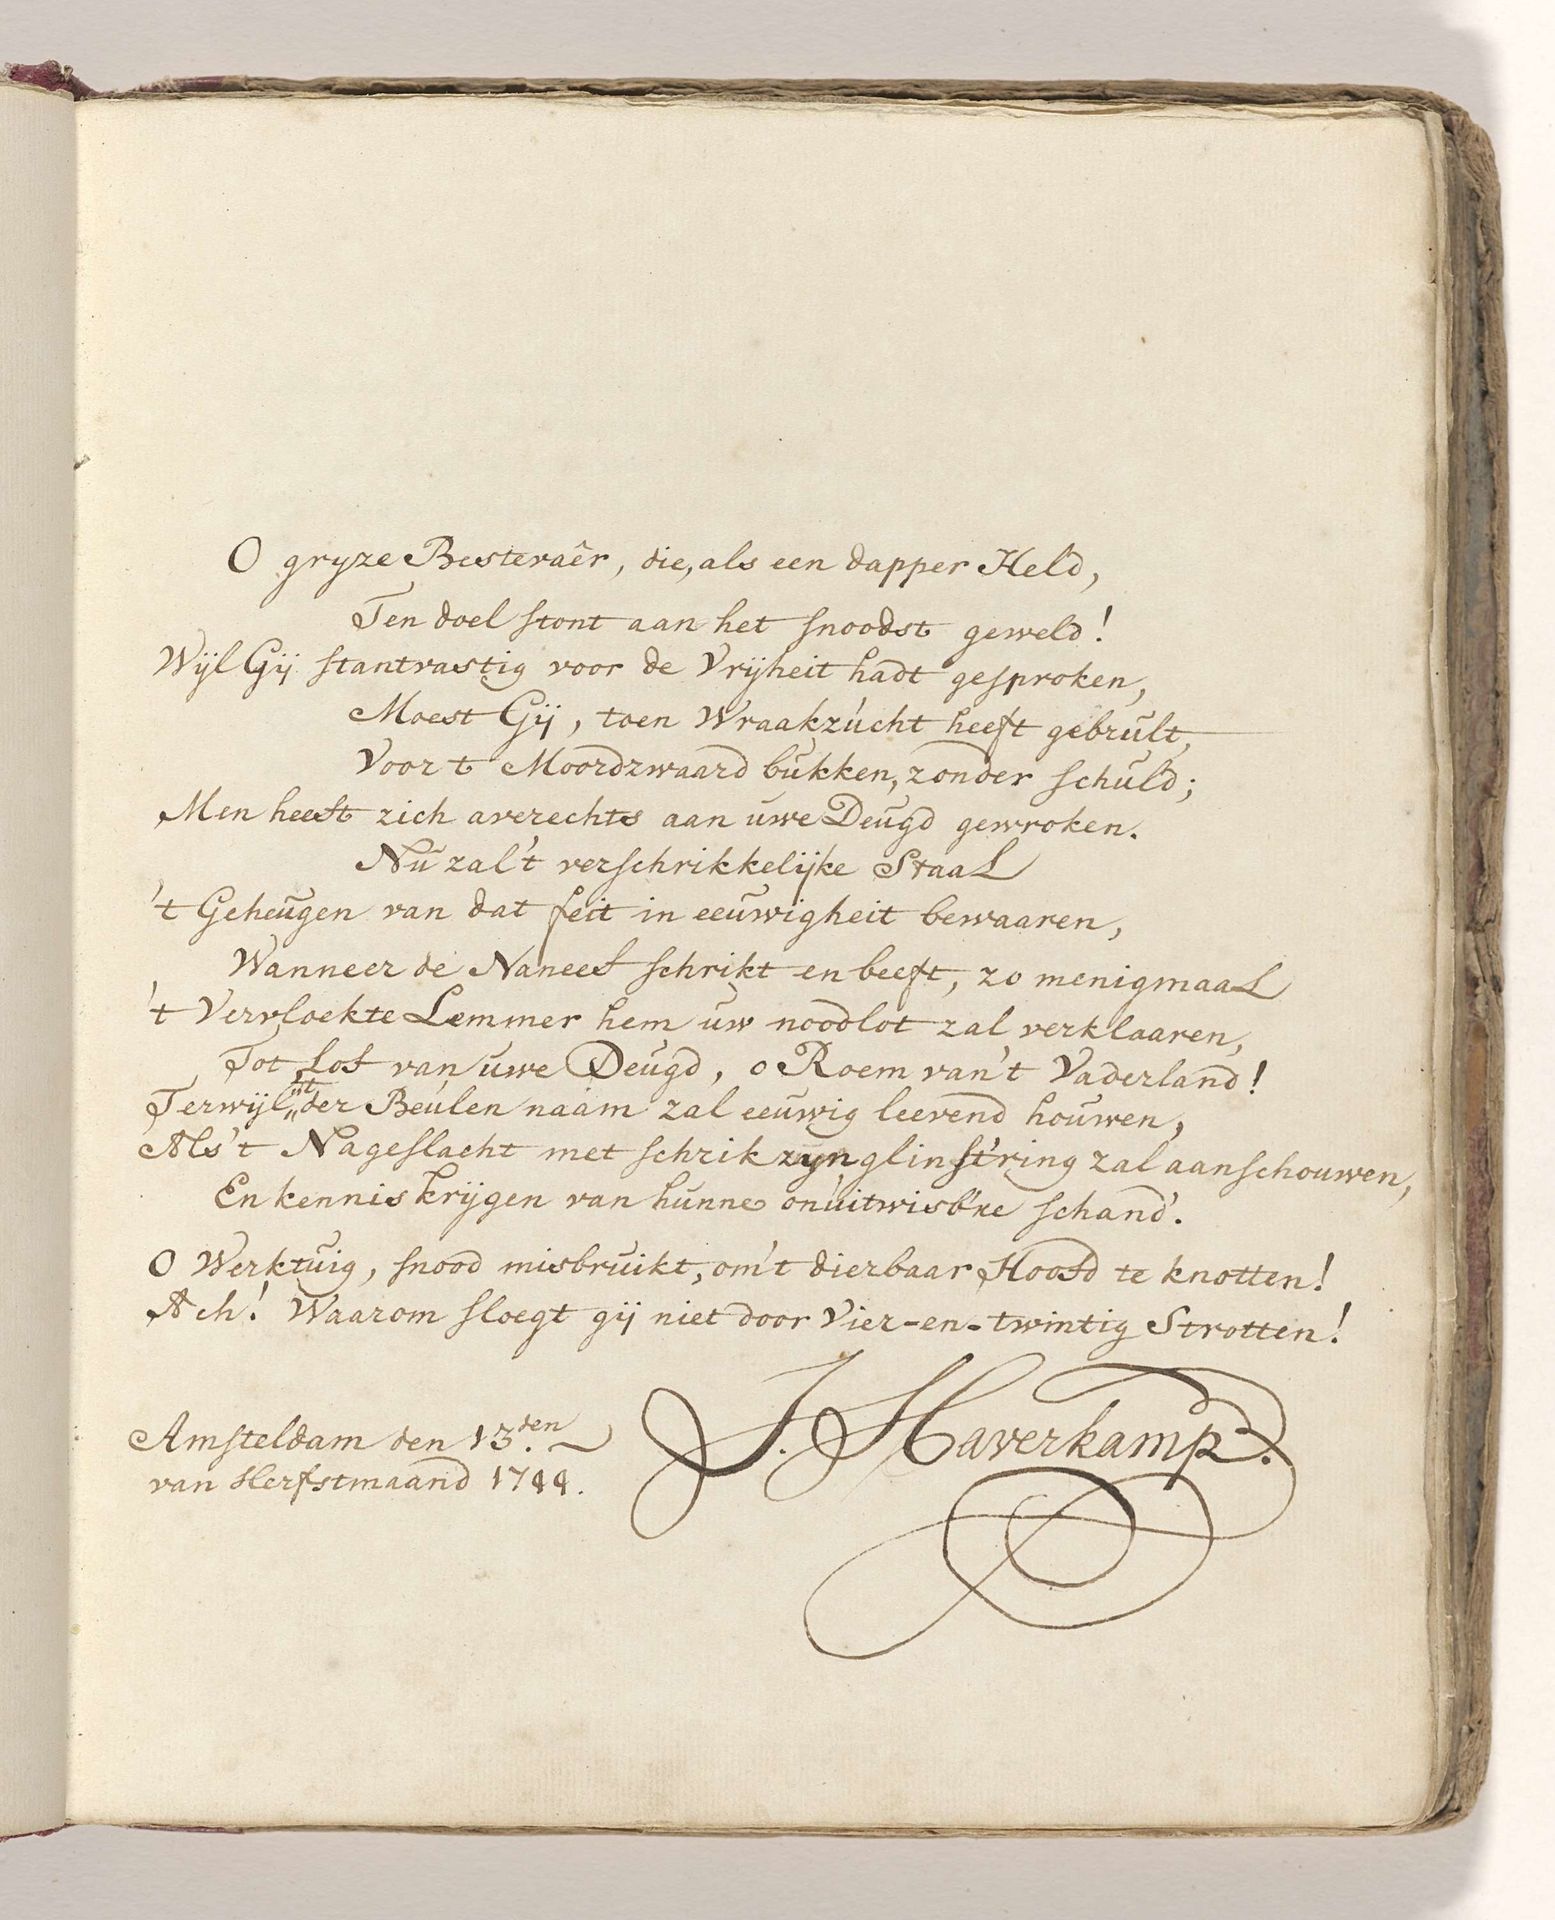 O gryze Bestevaêr, die, als een dapper Held,
Ten doel stont aan het snoodst geweld!
Wijl Gij stantvastig voor de Vrijheit hadt gesproken,
Moest Gij, toen Wraakzucht heeft gebrult,
Voor 't Moordzwaard bukken, zonder schuld;
Men heeft zich averechts aan uwe Deugd gewroken.
Nu zal 't verschrikkelijke Staal
't Geheugen van dat feit in eeuwigheit bewaaren,
Wanneer de Naneef schrikt en beeft, zo menigmaal
't Vervloekte Lemmer hem uw noodlot zal verklaaren,
Tot Lof van uwe Deugd, o Roem van 't Vaderland!
Terwijl 't der Beulen naam zal eeuwig leevend houwen,
Als 't Nageslacht met schrik zyn glinst'ring zal aanschouwen,
En kennis krijgen van hunne onuitwisb're schand'.
O Werktuig, snood misbruikt, om 't dierbaar Hoofd te knotten!
Ach! Waarom sloegt gij niet door Vier-en-twintig Strotten!
J. Haverkamp.
Amsteldam den 13.den
van Herfstmaand 1744.